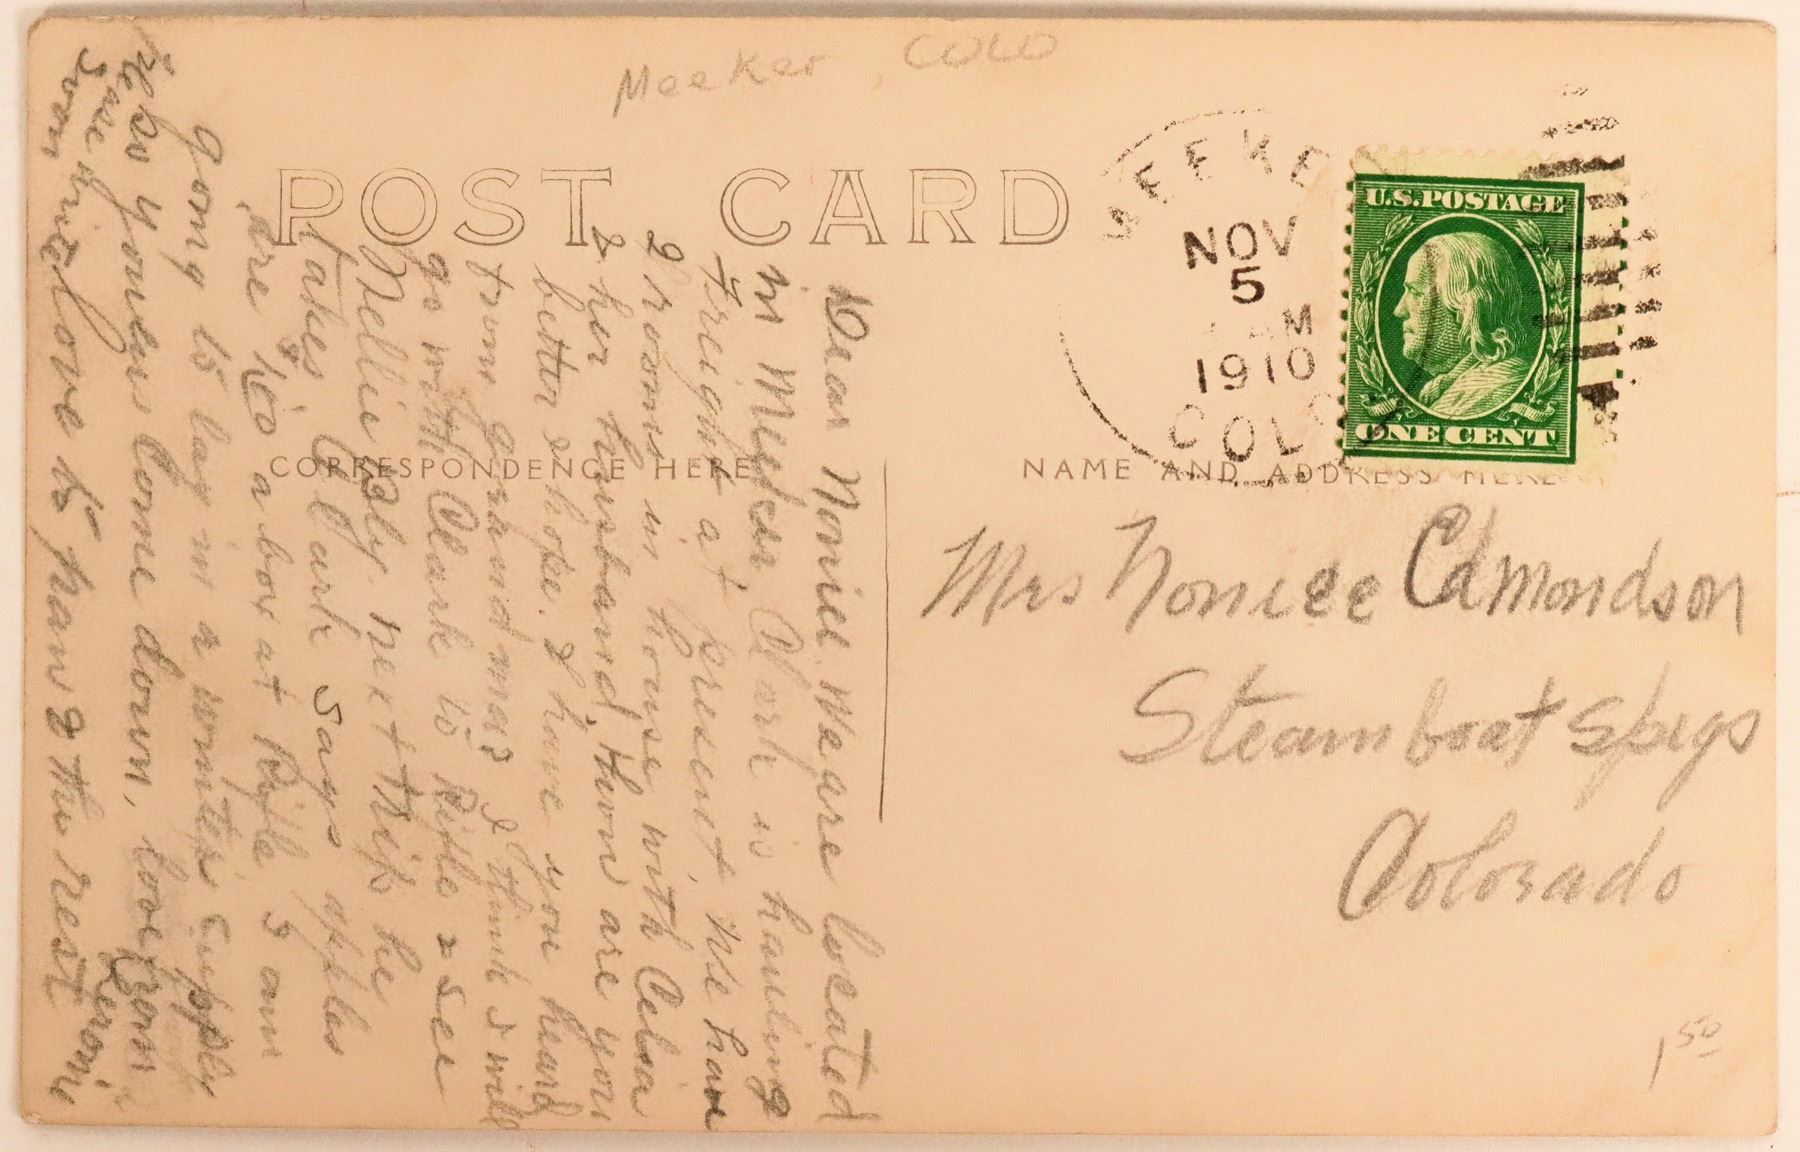 Meeker, COLO
POST CARD
MEEKER
NOV
5
AM
1910
COLO
U.S. POSTAGE
ONE CENT
CORRESPONDENCE HERE
NAME AND ADDRESS HERE
Mrs Noniee Edmondson
Steamboat Spgs
Colorado
1 50
Dear Noniee. We are located
in Meeker, Clark is hauling
freight at present, we have
2 rooms in house with Celia
& her husband, how are you
better I hope. I have you heard
from grandma? I think I will
go with Clark to Rifle & see
Nellie Bly next trip he
takes Clark says apples
are 100 a box at Rifle I am
going to lay in a winters supply
come down, love from
love to hans & the rest